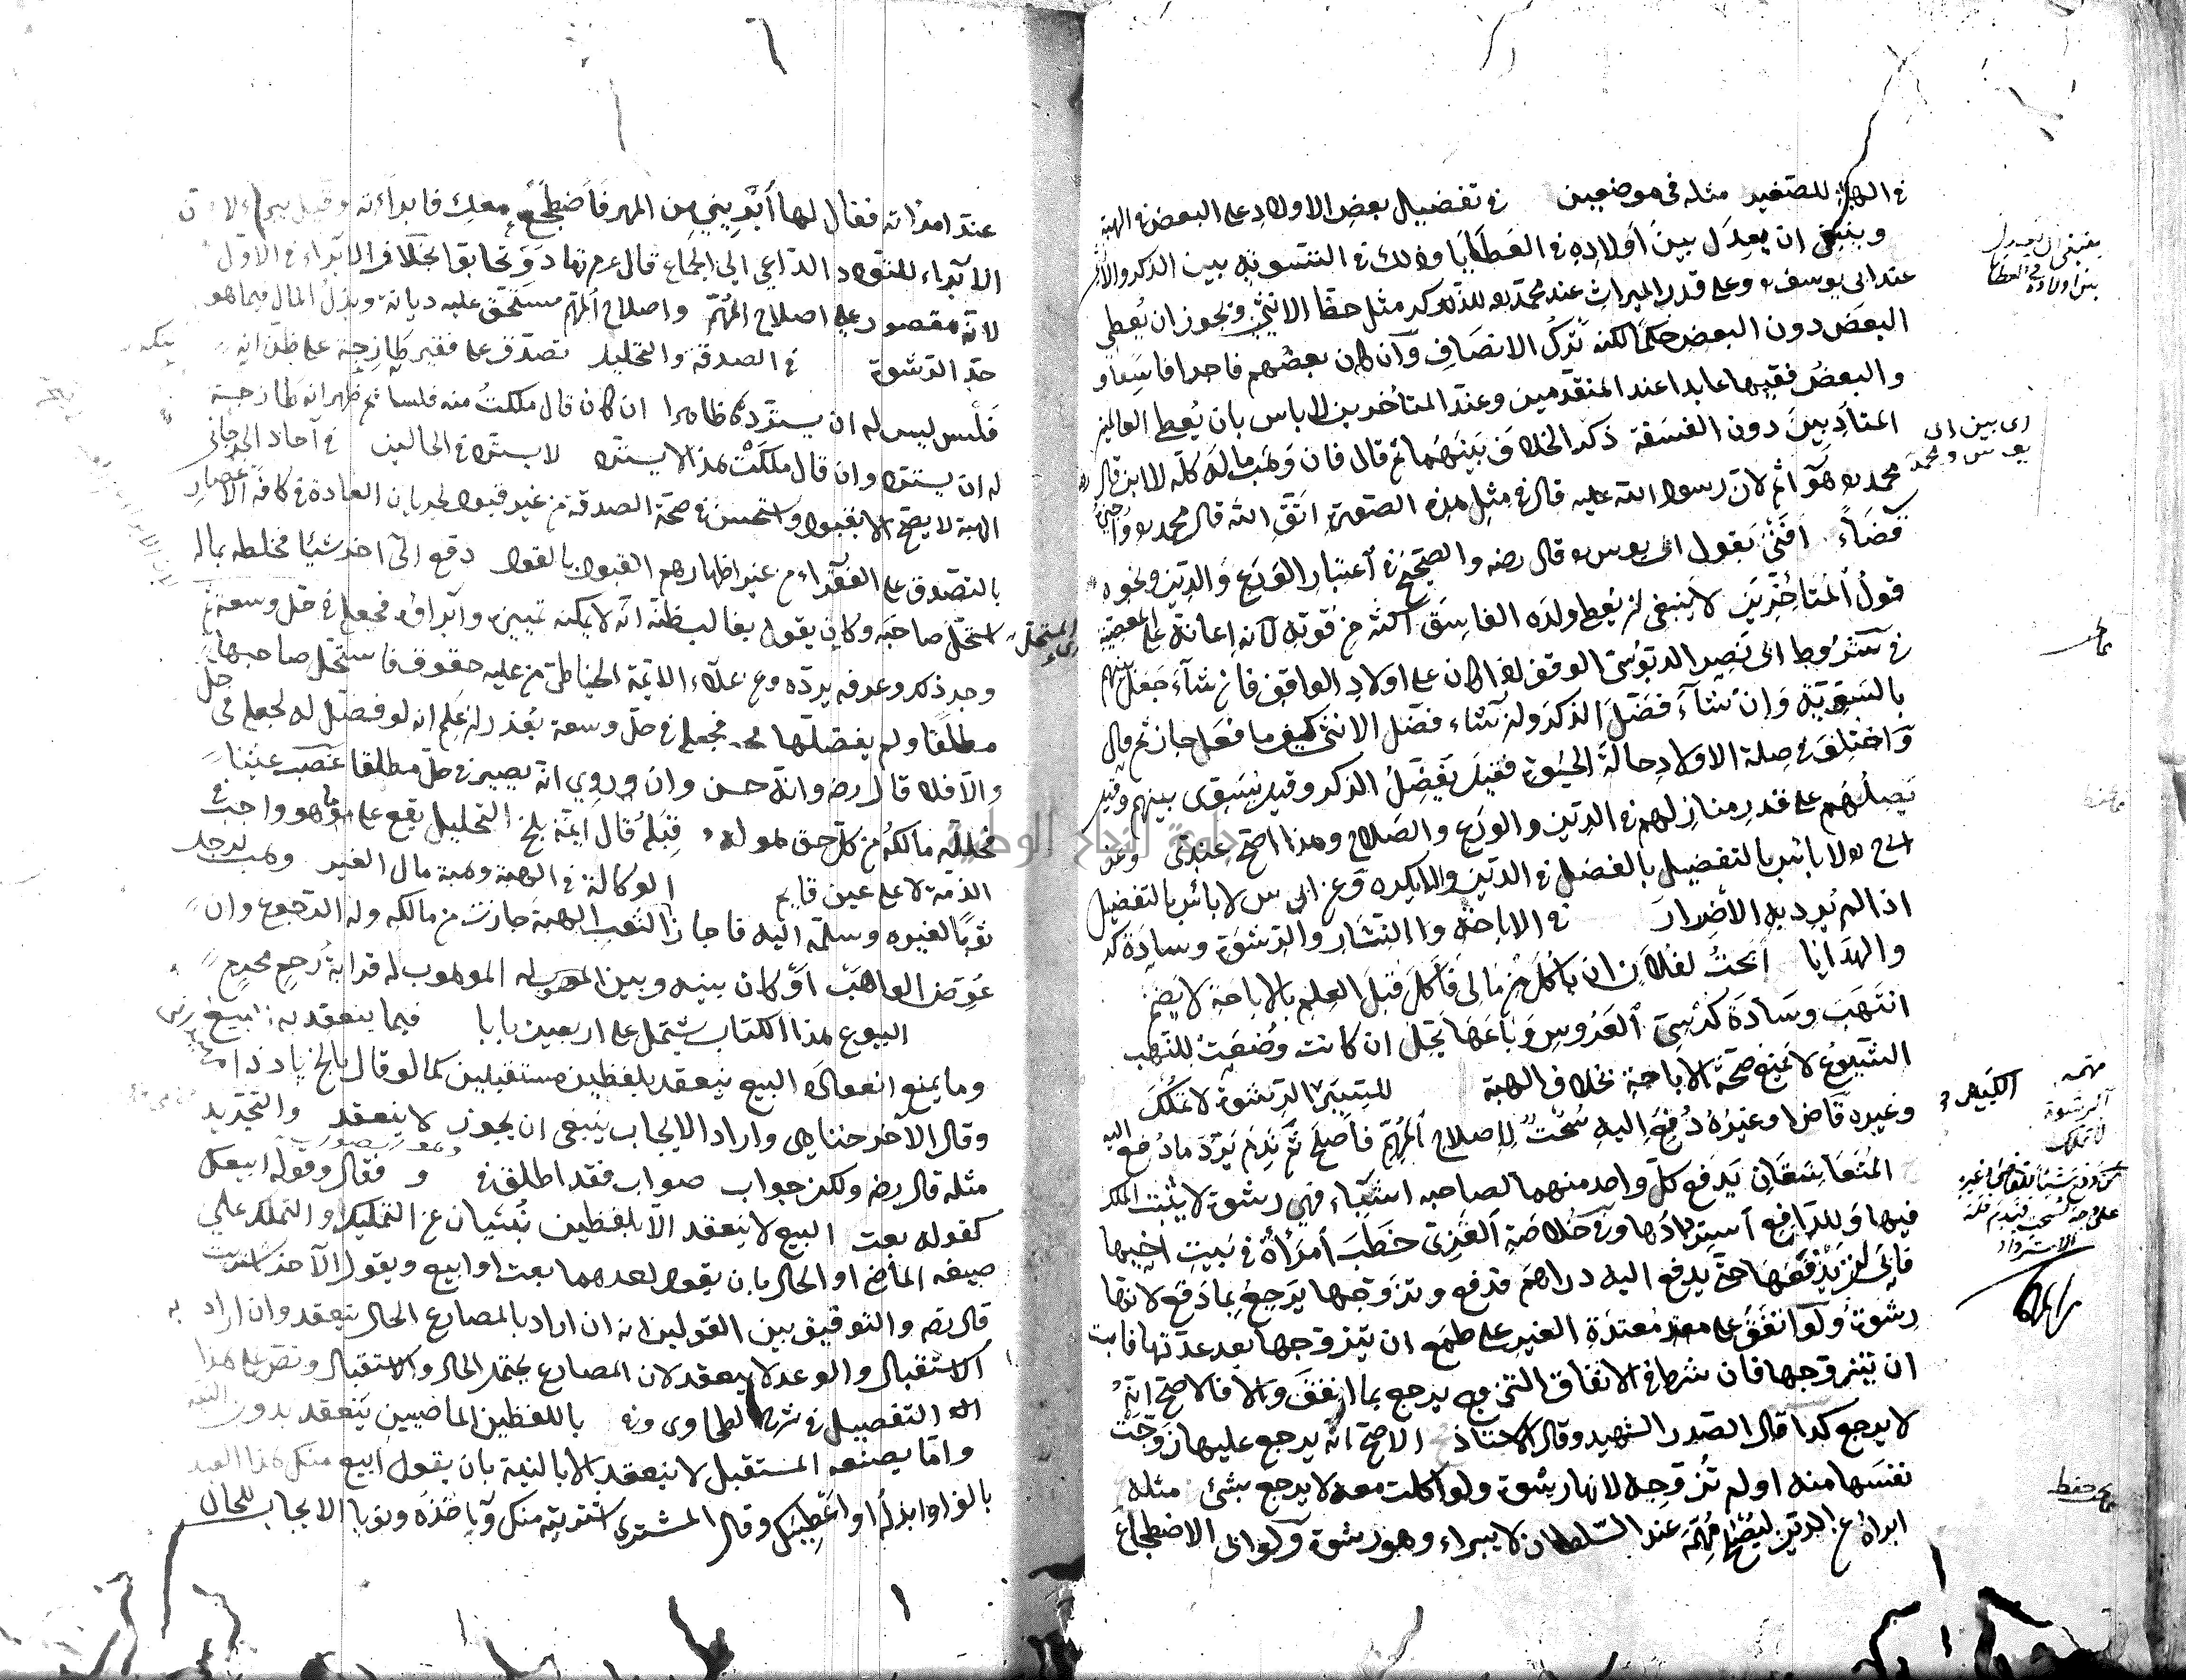 في الهبة للصغير مثله في موضعين في تفضيل بعض الاولاد على البعض في الهبة
وينبغي ان يعدل بين اولاده في العطايا وذلك في التسوية بين الذكر والانثى
عند ابي يوسف وعلى قدر الميراث عند محمد للذكر مثل حظ الانثيين ويجوز ان يعطي
البعض دون البعض حكما لكنه ترك الانصاف وان كان بعضهم فاجرا فاسقا و
والبعض فقيها عابدا عند المتقدمين وعند المتأخرين لا باس بان يعطى العالمين
المتأدبين دون الفسقة ذكر الخلاف بينهما ثم قال فان وهب ماله كله لابن قال
محمد هو آثم لان رسول الله عليه قال في مثل هذه الصورة اتق الله قال محمد واجيزه
قضاء افتى بقول ابي يوسف قال رضه والصحيح في اعتبار الورع والدين ونحوه
قول المتأخرين لا ينبغي ان يعطي ولده الفاسق اكثر من قوته لانه اعانة على المعصية
في شروط ابي نصر الدبوسي الوقف اذا كان على اولاد الواقف فان شاء جعل بينهم
بالسوية وان شاء فضل الذكر وان شاء فضل الانثى كيف ما فعل جاز ثم قال
واختلف في صلة الاولاد حالة الحيوة فقيل يفضل الذكر وقيل يسوى بينهم وقيل
يصلهم على قدر منازلهم في الدين والورع والصلاح وهذا اصح عندي وعن
ابي ح لا باس بالتفضيل بالفضل في الدين والا يكره وعن ابي س لا بأس بالتفضيل
اذا لم يرد به الاضرار في الاباحة والنثار والرشوة وسادة كد
والهدايا ابحت لفلان ان ياكل من مالي فاكل قبل العلم بالاباحة لا يضمن
انتهب وسادة كرسي العروس وباعها يحل ان كانت وضعت للنهب
الشيوع لا يمنع صحة الاباحة بخلاف الهبة الرشوة لا تملك
وغيره قاض او غيره دفع اليه سحت لاصلاح المهم فاصلح ثم ندم يرد ما دفع اليه
المتعاشقان يدفع كل واحد منهما لصاحبه اشياء فهي رشوة لا يثبت الملك
فيها وللدافع استردادها وفي خلاصة الغزي خطب امرأة في بيت اخيها
فابى ان يدفعها حتى يدفع اليه دراهم فدفع وتزوجها يرجع بما دفع لانها
رشوة ولو انفق على معتدة الغير على طمع ان يتزوجها بعد عدتها فابت
ان تتزوجها فان شرط في الانفاق التزوج يرجع بما انفق والا فالاصح انه
لا يرجع كذا قال الصدر الشهيد وقال الاستاذ الاصح انه يرجع عليها زوجت
نفسها منه او لم تزوجه لانها رشوة ولو اكلت معه لا يرجع بشئ مثله
ابراه عن الدين ليصلح مهمه عند السلطان لا يبراء وهو رشوة ولو ابى الاضطجاع
ينبغي ان يعدل
بين اولاده في العطايا
اى بين ابى
يوسف ومحمد
مهمه
الرشوة
لا تملك
عند امرأته فقال لها ابرئيني من المهر فاضطجع معك فابراته وقيل يبراء لان
الابراء للتودد الداعي الى الجماع قال عم تهادوا تحابوا بخلاف الابراء في الاول
لانه مقصور على اصلاح المهم واصلاح المهم مستحق عليه ديانة وبذل المال فيما هو
حد الرشوة في الصدقة والتحليل تصدق على فقير طازجة على ظن انه
فلس ليس له ان يسترده ظاهرا ان كان قال ملكت منه فلسا ثم ظهر انه طازجة
له ان يسترد وان قال ملكت هذا لا يسترد لا يسترد في الحالين في آحاد الجرجاني
الهبة لا يصح الا بالقبول واستحسن في صحة الصدقة من غير قبول لجريان العادة في كافة الاعصار
بالتصدق على الفقراء من غير اظهارهم القبول بالقول دفع الى اخر شيئا فخلطه بماله
استحل صاحبه وكان يقول بغالب ظنه انه لا يمكنه تمييزه وابراؤه فجعله في حل وسعة ثم
وجد ذكر وعرفه يرده وعن علاء الائمة الحناطي من عليه حقوق فاستحل صاحبها
مطلقا ولم يفصلها فجعله في حل وسعة يعذر ان علم انه لو فصل له لجعله في حل
والا فلا قال رضه وانه حسن وان روي انه يصير في حل مطلقا غصب عينا
فحلله مالكه من كل حق هو له قبله قال ائمة بلخ التحليل يقع على ما هو واجب في
الذمة لا على عين قايم الوكالة في الهبة وهبة مال الغير وهب لرجل
ثوبا لغيره وسلمه اليه فاجاز رب الثوب الهبة جازت من مالكه وله الرجوع وان
عوض الواهب او كان بينه وبين الموهوب له قرابة رحم محرم
البيوع هذا الكتاب يشتمل على اربعين بابا فيما ينعقد به البيع
وما يمنع انعقاده البيع ينعقد بلفظين مستقبلين كما لو قال
وقال الآخر واراد الايجاب ينبغي ان يجوز لا ينعقد والتجريد
مثله قال رضه ولكن جواب صواب فقد اطلق في و فقال وقوله ابيعك
كقوله بعت البيع لا ينعقد الا بلفظين ينبئان عن التمليك والتملك على
صيغة الماضي او الحال بان يقول احدهما بعت او ابيع ويقول الآخر اشتريت
قال رضه والتوفيق بين القولين انه ان اراد بالمضارع الحال ينعقد وان اراد به
الاستقبال والوعد لا ينعقد لان المضارع يحتمل الحال والاستقبال ونص على هذا
التفصيل في شرح الطحاوي وفي باللفظين الماضيين ينعقد بدون النية
واما بصيغة المستقبل لا ينعقد الا بالنية بان يقول ابيع منك هذا العبد
بالف او ابذله او اعطيك وقال المشتري اشتريته منك وآخذه ونويا الايجاب للحال